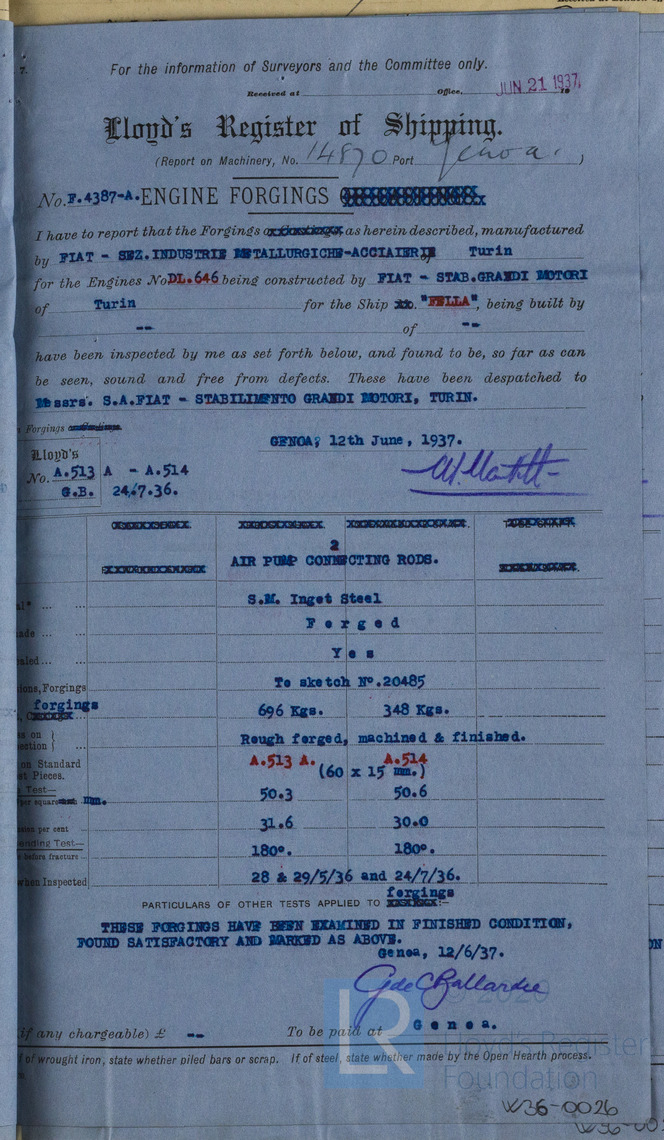 7.
For the information of Surveyors and the Committee only.
Received at Office, JUN 21 1937. 19
Lloyd's Register of Shipping.
(Report on Machinery, No. 14870 Port Genoa.)
No. F.4387-A. ENGINE FORGINGS
I have to report that the Forgings as herein described, manufactured
by FIAT - SEZ.INDUSTRIE METALLURGICHE-ACCIAIERIE of Turin
for the Engines No DL.646 being constructed by FIAT - STAB.GRANDI MOTORI
of Turin for the Ship "FELLA", being built by
-- of --
have been inspected by me as set forth below, and found to be, so far as can
be seen, sound and free from defects. These have been despatched to
Messrs. S.A.FIAT - STABILIMENTO GRANDI MOTORI, TURIN.
s Forgings
GENOA, 12th June, 1937.
Lloyd's
No. A.513 A - A.514
G.B. 24.7.36.
2
AIR PUMP CONNECTING RODS.
al" ... ... S.M. Ingot Steel
ade ... ... Forged
aled ... ... Yes
ions, Forgings To sketch N°.20485
forgings 696 Kgs. 348 Kgs.
ss on }
ection } ... Rough forged, machined & finished.
on Standard A.513 A. A.514
st Pieces. (60 x 15 mm.)
Test—
per square mm. 50.3 50.6
sion per cent 31.6 30.0
ending Test—
before fracture ... 180°. 180°.
when Inspected 28 & 29/5/36 and 24/7/36.
forgings
PARTICULARS OF OTHER TESTS APPLIED TO :-
THESE FORGINGS HAVE BEEN EXAMINED IN FINISHED CONDITION,
FOUND SATISFACTORY AND MARKED AS ABOVE.
Genoa, 12/6/37.
G de C Ballardie
© 2020
(if any chargeable) £ -- To be paid at Genoa.
If of wrought iron, state whether piled bars or scrap. If of steel, state whether made by the Open Hearth process.
LR
Lloyd's Register
Foundation
W36-0026